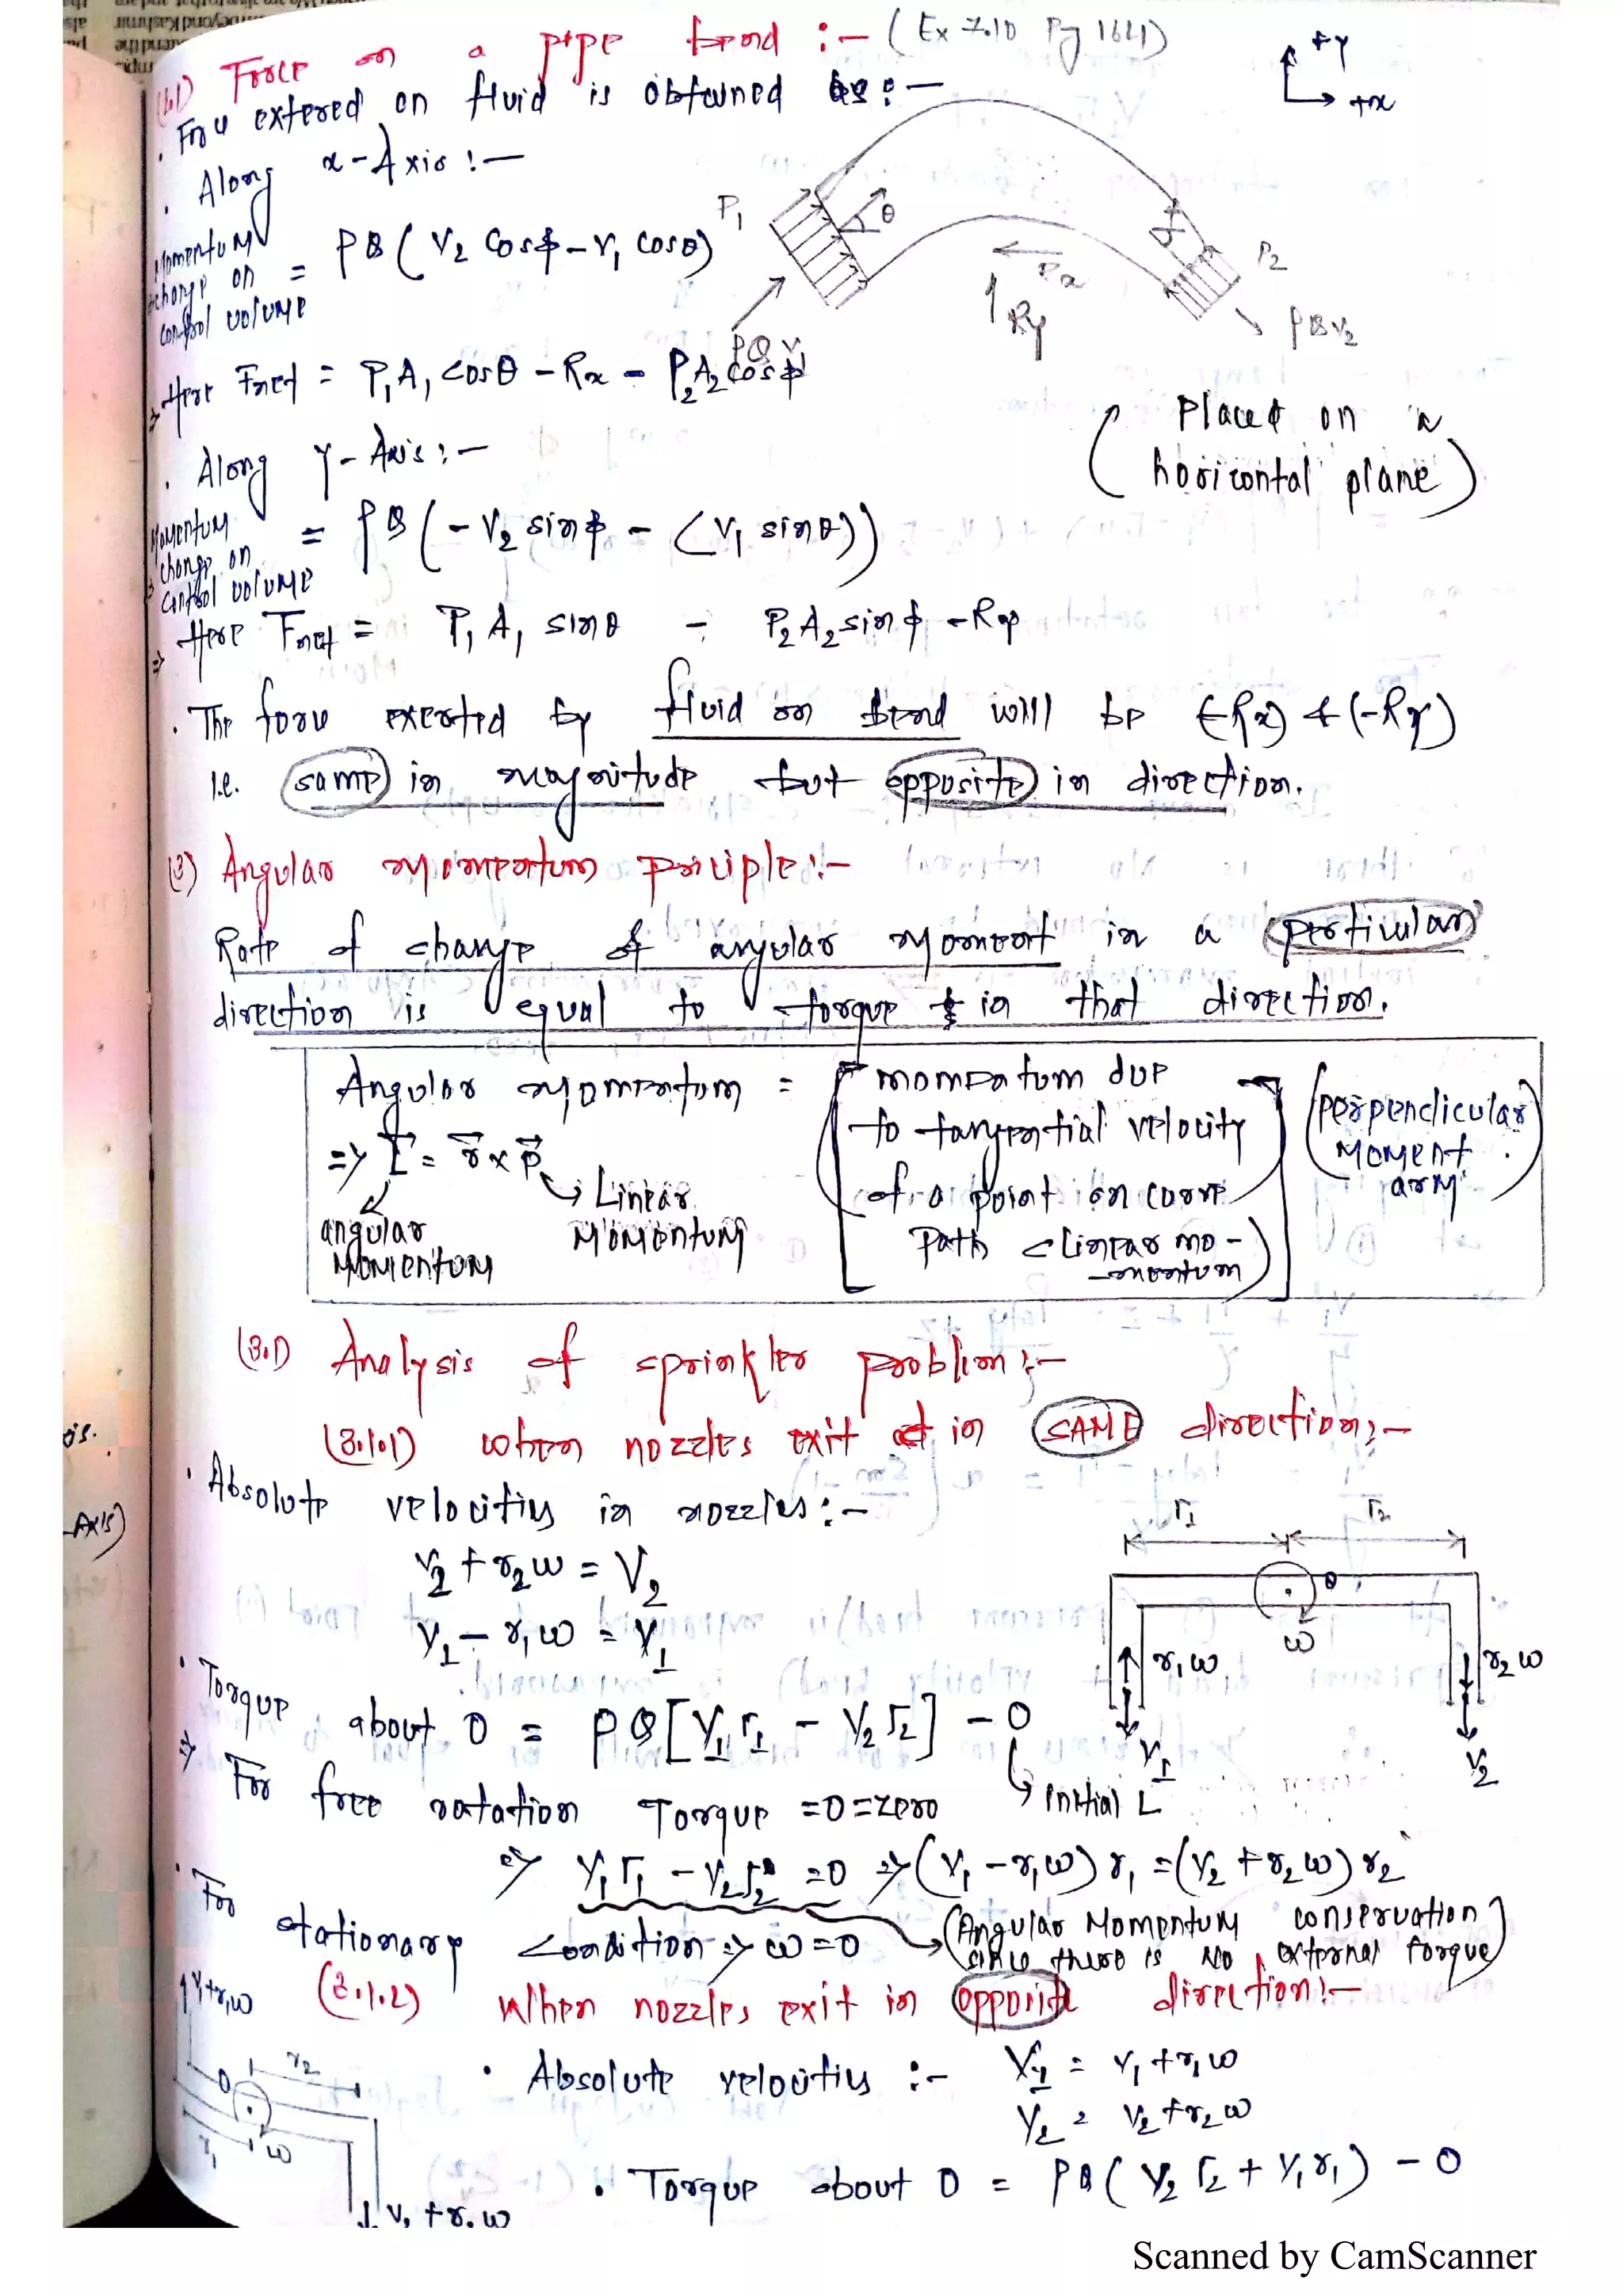 Force on a pipe bend :- (Ex 7.10 Pg 1621)
+Y
+x
. Force extered on fluid is obtained as :-
. Along x-Axis :-
Momentum change on control volume = ρQ( V₂ cosϕ - V₁ cosθ)
P₁
θ
ϕ
P₂
Rx
Ry
ρQV₁
ρQV₂
⇒ Here Fnet = P₁A₁ cosθ - Rx - P₂A₂ cosϕ
(Placed on a horizontal plane)
. Along Y-Axis :-
Momentum change on control volume = ρQ( - V₂ sinϕ - (V₁ sinθ))
⇒ Here Fnet = P₁A₁ sinθ - P₂A₂ sinϕ - Ry
. The force exerted by fluid on bend will be (-Rx) & (-Ry)
i.e. same in magnitude but opposite in direction.
(3) Angular momentum principle :-
Rate of change of angular moment in a perticular
direction is equal to torque in that direction.
Angular momentum = [momentum due to tangential velocity of a point on curve Path (linear mo-mentum)] (perpendicular moment arm)
⇒ L = r × p
angular momentum
Linear Momentum
(3.1) Analysis of sprinkler problem :-
(3.1.1) when nozzles exit in SAME direction :-
. Absolute velocities in nozzles :-
r₁
r₂
V₂ + r₂ω = V₂
V₁ - r₁ω = V₁
O
ω
r₁ω
r₂ω
V₁
V₂
. Torque about O = ρQ[V₁r₁ - V₂r₂] - 0
initial L
⇒ For free rotation Torque = 0 = zero
⇒ V₁r₁ - V₂r₂ = 0 ⇒ (V₁ - r₁ω) r₁ = (V₂ + r₂ω) r₂
. For stationary condition ⇒ ω = 0
(Angular Momentum conservation since there is no external torque)
(3.1.2) When nozzles exit in opposite direction :-
V₁+r₁ω
r₂
O
r₁
ω
. Absolute velocities :- V₁ = V₁ + r₁ω
V₂ = V₂ + r₂ω
. Torque about O = ρQ( V₂r₂ + V₁r₁) - 0
is.
-Axis)
Scanned by CamScanner